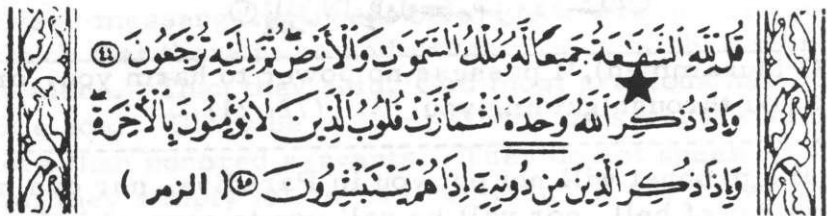 قُل لِّلَّهِ ٱلشَّفَٰعَةُ جَمِيعًا لَّهُۥ مُلْكُ ٱلسَّمَٰوَٰتِ وَٱلْأَرْضِ ثُمَّ إِلَيْهِ تُرْجَعُونَ ٤٤
وَإِذَا ذُكِرَ ٱللَّهُ وَحْدَهُ ٱشْمَأَزَّتْ قُلُوبُ ٱلَّذِينَ لَا يُؤْمِنُونَ بِٱلْأَخِرَةِ
وَإِذَا ذُكِرَ ٱلَّذِينَ مِن دُونِهِۦٓ إِذَا هُمْ يَسْتَبْشِرُونَ ٤٥ ( الزمر )